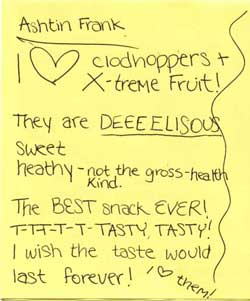 Ashtin Frank
I ♡ clodhoppers +
X-treme Fruit!
They are DEEEELISOUS
sweet
heathy - not the gross-health
kind.
The BEST snack EVER!
T-T-T-T-TASTY, TASTY!
I wish the taste would
last forever! I ♡ them!